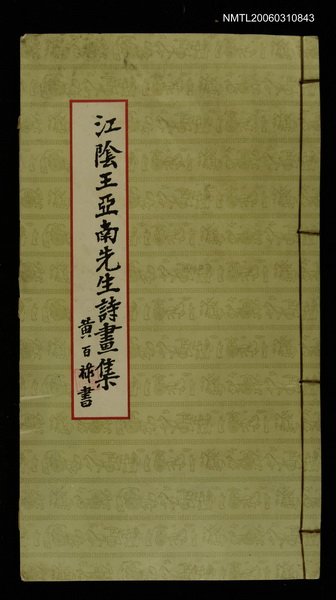 NMTL20060310843
江陰王亞南先生詩畫集
黃百祿書